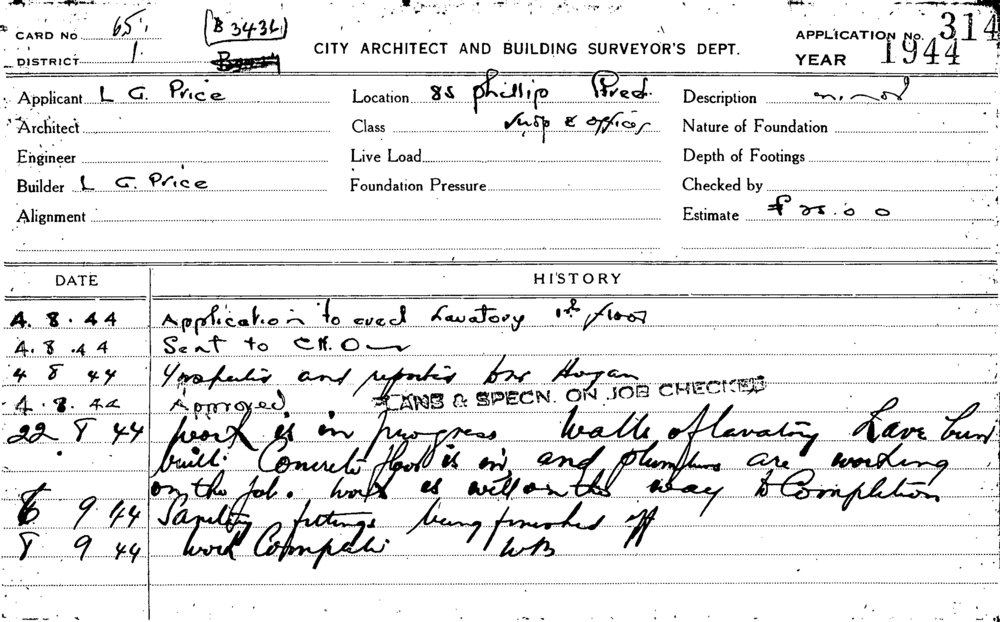 CARD NO 65.
B 3434
APPLICATION NO. 314
DISTRICT 1
CITY ARCHITECT AND BUILDING SURVEYOR'S DEPT.
YEAR 1944
Applicant L G. Price
Location 85 Phillip Street.
Description
Architect
Class Shop & offices
Nature of Foundation
Engineer
Live Load
Depth of Footings
Builder L G. Price
Foundation Pressure
Checked by
Alignment
Estimate £ 25.0 0
DATE HISTORY
4. 8. 44 Application to erect Lavatory 1st floor
4. 8. 44 Sent to
4 8 44 and Hogan
4. 8. 44 Approved PLANS & SPECN. ON JOB CHECKED
22 8 44 Work is in progress Walls of lavatory have been
built. Concrete floor is in, and plumbers are working
on the job. Work is well on the way to Completion
6 9. 44 Sanitary fittings being finished off
8 9 44 Work Complete WB